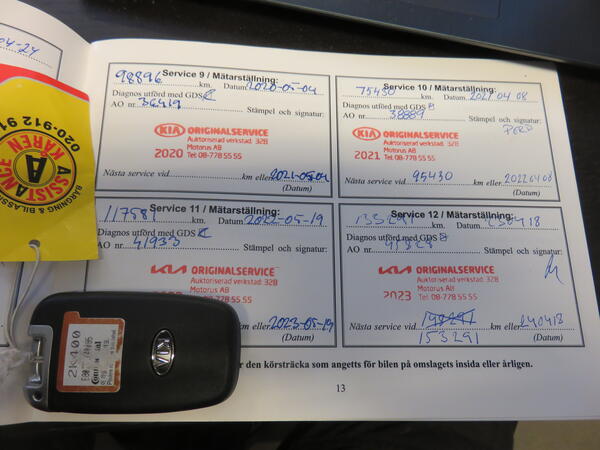 04-24
020-912 91
ASSISTANCE
KÅREN
A
BÄRGNING & BILASSIS
Service 9 / Mätarställning:
98896 km. Datum 2020-05-04
Diagnos utförd med GDS
AO nr. 36419 Stämpel och signatur:
KIA ORIGINALSERVICE
Auktoriserad verkstad: 32B
Motorus AB
2020 Tel 08-778 55 55
Nästa service vid km eller 2021-05-04
(Datum)
Service 10 / Mätarställning:
75430 km. Datum 2021 04 08
Diagnos utförd med GDS
AO nr. 38889 Stämpel och signatur:
KIA ORIGINALSERVICE
Auktoriserad verkstad: 32B
Motorus AB
2021 Tel 08-778 55 55
Nästa service vid 95430 km eller 2022 04 08
(Datum)
Service 11 / Mätarställning:
117581 km. Datum 2022-05-19
Diagnos utförd med GDS
AO nr. 41933 Stämpel och signatur:
KIA ORIGINALSERVICE
Auktoriserad verkstad: 32B
Motorus AB
Tel 08-778 55 55
km eller 2023-05-19
(Datum)
Service 12 / Mätarställning:
133291 230418
Diagnos utförd med GDS
AO nr. Stämpel och signatur:
KIA ORIGINALSERVICE
Auktoriserad verkstad: 32B
Motorus AB
2023 Tel 08-778 55 55
Nästa service vid 148291 km eller 240418
153291 (Datum)
der körsträcka som angetts för bilen på omslagets insida eller årligen.
13
2K400
KIA